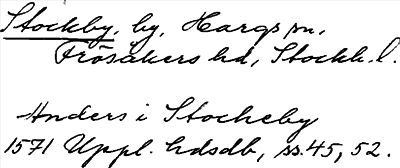 Stockby, by, Hargs sn,
Frösåkers hd, Stockh. l.
Anders i Stockeby
1571 Uppl. hdsdb, ss. 45, 52.